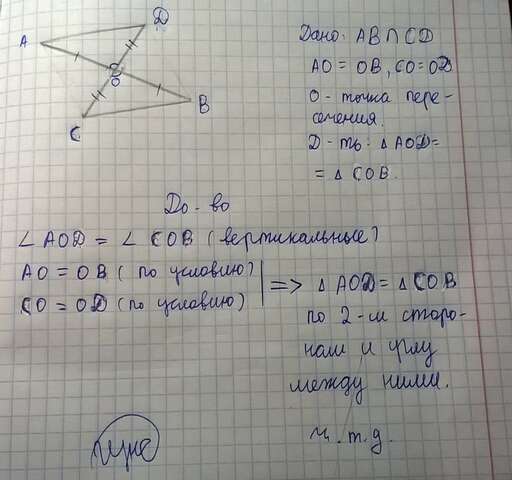 A
D
O
B
C
Дано: AB∩CD
AO = OB, CO=OD
O - точка пере-
сечения.
Д-ть: △AOD=
= △COB.
До-во
∠AOD = ∠COB (вертикальные)
AO = OB (по условию)
CO = OD (по условию)
=> △AOD=△COB
по 2-м сторо-
нам и углу
между ними.
ч.т.д.